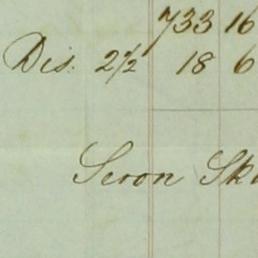 733 16
Dis. 2½ 18 6
Seron